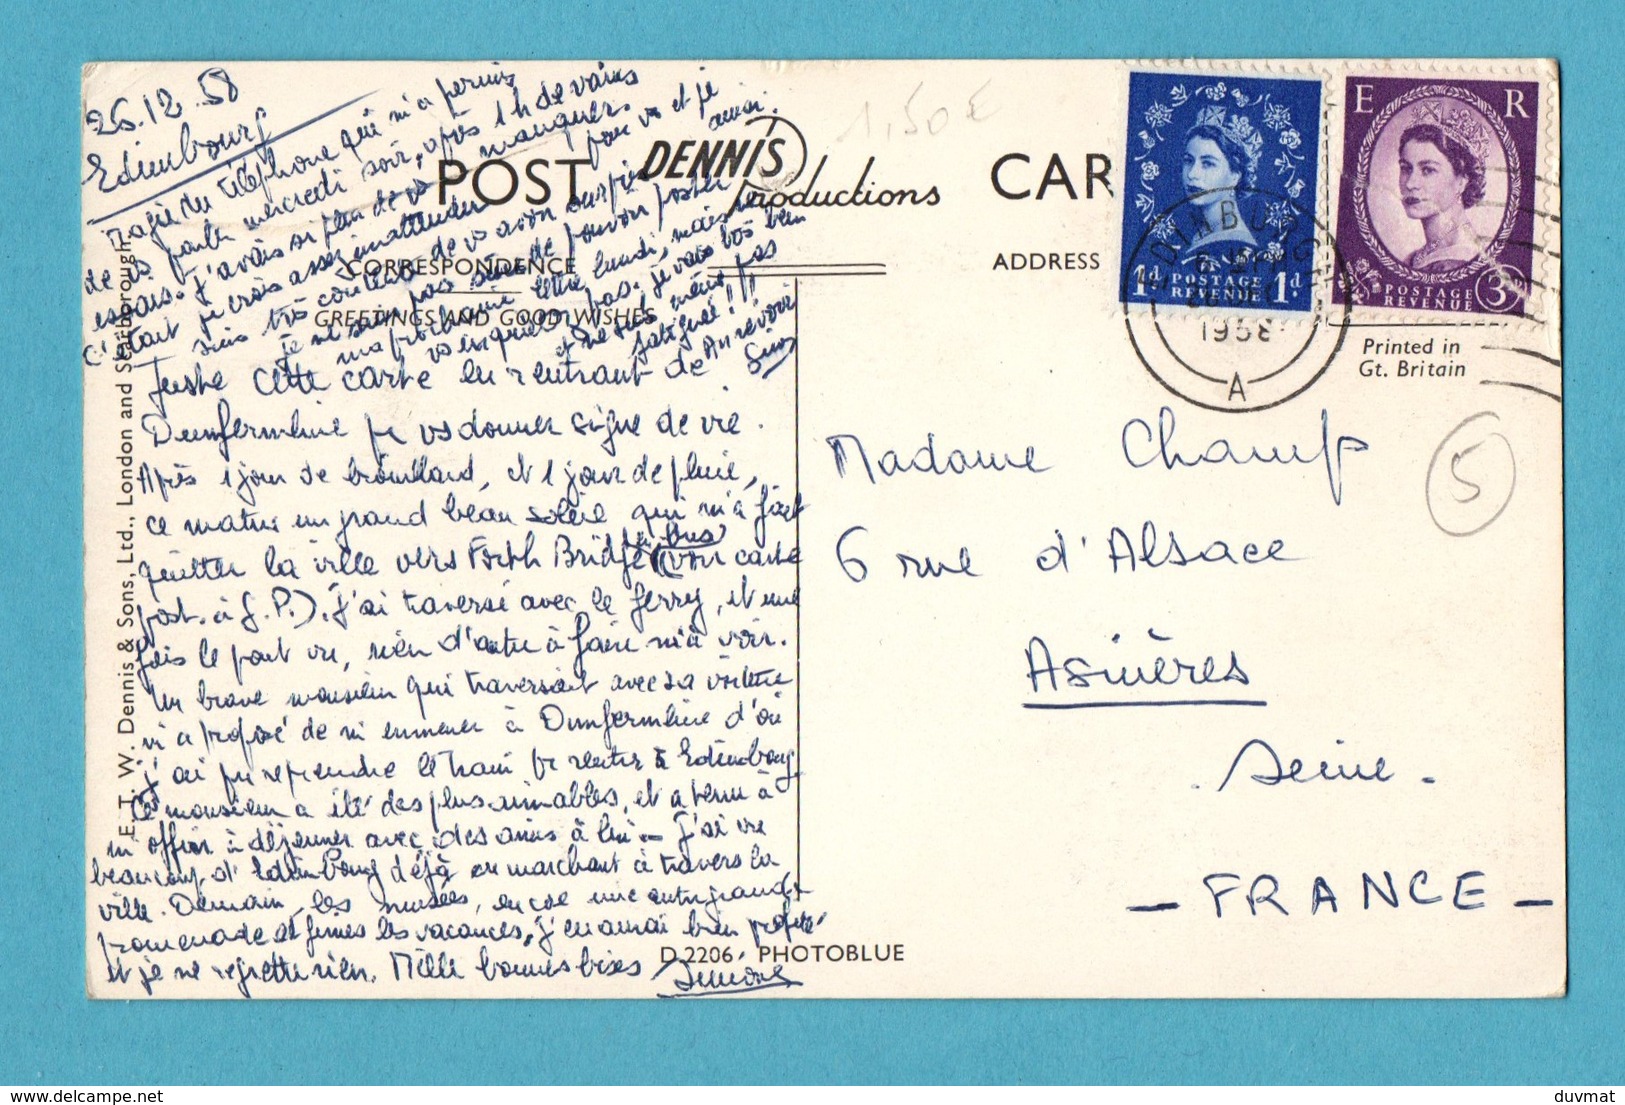 26.12.58
Edimbourg
Magie du téléphone qui m'a permis
de vs parler mercredi soir, après 1h de vains
essais. J'avais si peur de vs manquer.
C'était je crois assez inattendu pour vs et je
suis très contente de vs avoir surpris ainsi.
je ne sais pas si de pouvoir poster
ma prochaine lettre lundi, mais ne
vs inquiétez pas. je vais très bien
et ne suis même pas
fatiguée!!!
Au revoir
Sim
POST CAR
DENNIS
Productions
CORRESPONDENCE
ADDRESS
GREETINGS AND GOOD WISHES
Juste cette carte en rentrant de
Dunfermline pr vs donner signe de vie.
Après 1 jour de brouillard, et 1 jour de pluie,
ce matin un grand beau soleil qui m'a fait
quitter la ville vers Forth Bridge en bus (voir carte
post. à G.P.). J'ai traversé avec le ferry, et une
fois le pont vu, rien d'autre à faire ni à voir.
Un brave monsieur qui traversait avec sa voiture
m'a proposé de m'emmener à Dunfermline d'où
j'ai pu reprendre le train pr rentrer à Edimbourg.
Ce monsieur a été des plus aimables, et a tenu à
m'offrir à déjeuner avec des amis à lui - J'ai vu
beaucoup d'Edimbourg déjà en marchant à travers la
ville. Demain, les musées, encore une autre grande
promenade et finies les vacances, j'en aurai bien profité
et je ne regrette rien. Mille bonnes bises Simone
E. T. W. Dennis & Sons, Ltd., London and Scarborough
D.2206 PHOTOBLUE
1,50€
1d POSTAGE REVENUE 1d.
E R
POSTAGE REVENUE 3D
EDINBURGH
1958
A
Printed in
Gt. Britain
5
Madame Champ
6 rue d'Alsace
Asnières
Seine.
- FRANCE -
delcampe.net
duvmat